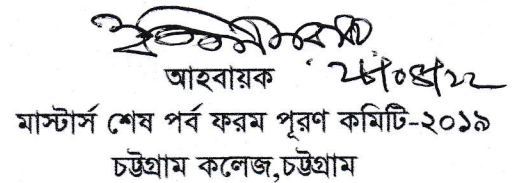 আহবায়ক
মাস্টার্স শেষ পর্ব ফরম পূরণ কমিটি-২০১৯
চট্টগ্রাম কলেজ,চট্টগ্রাম